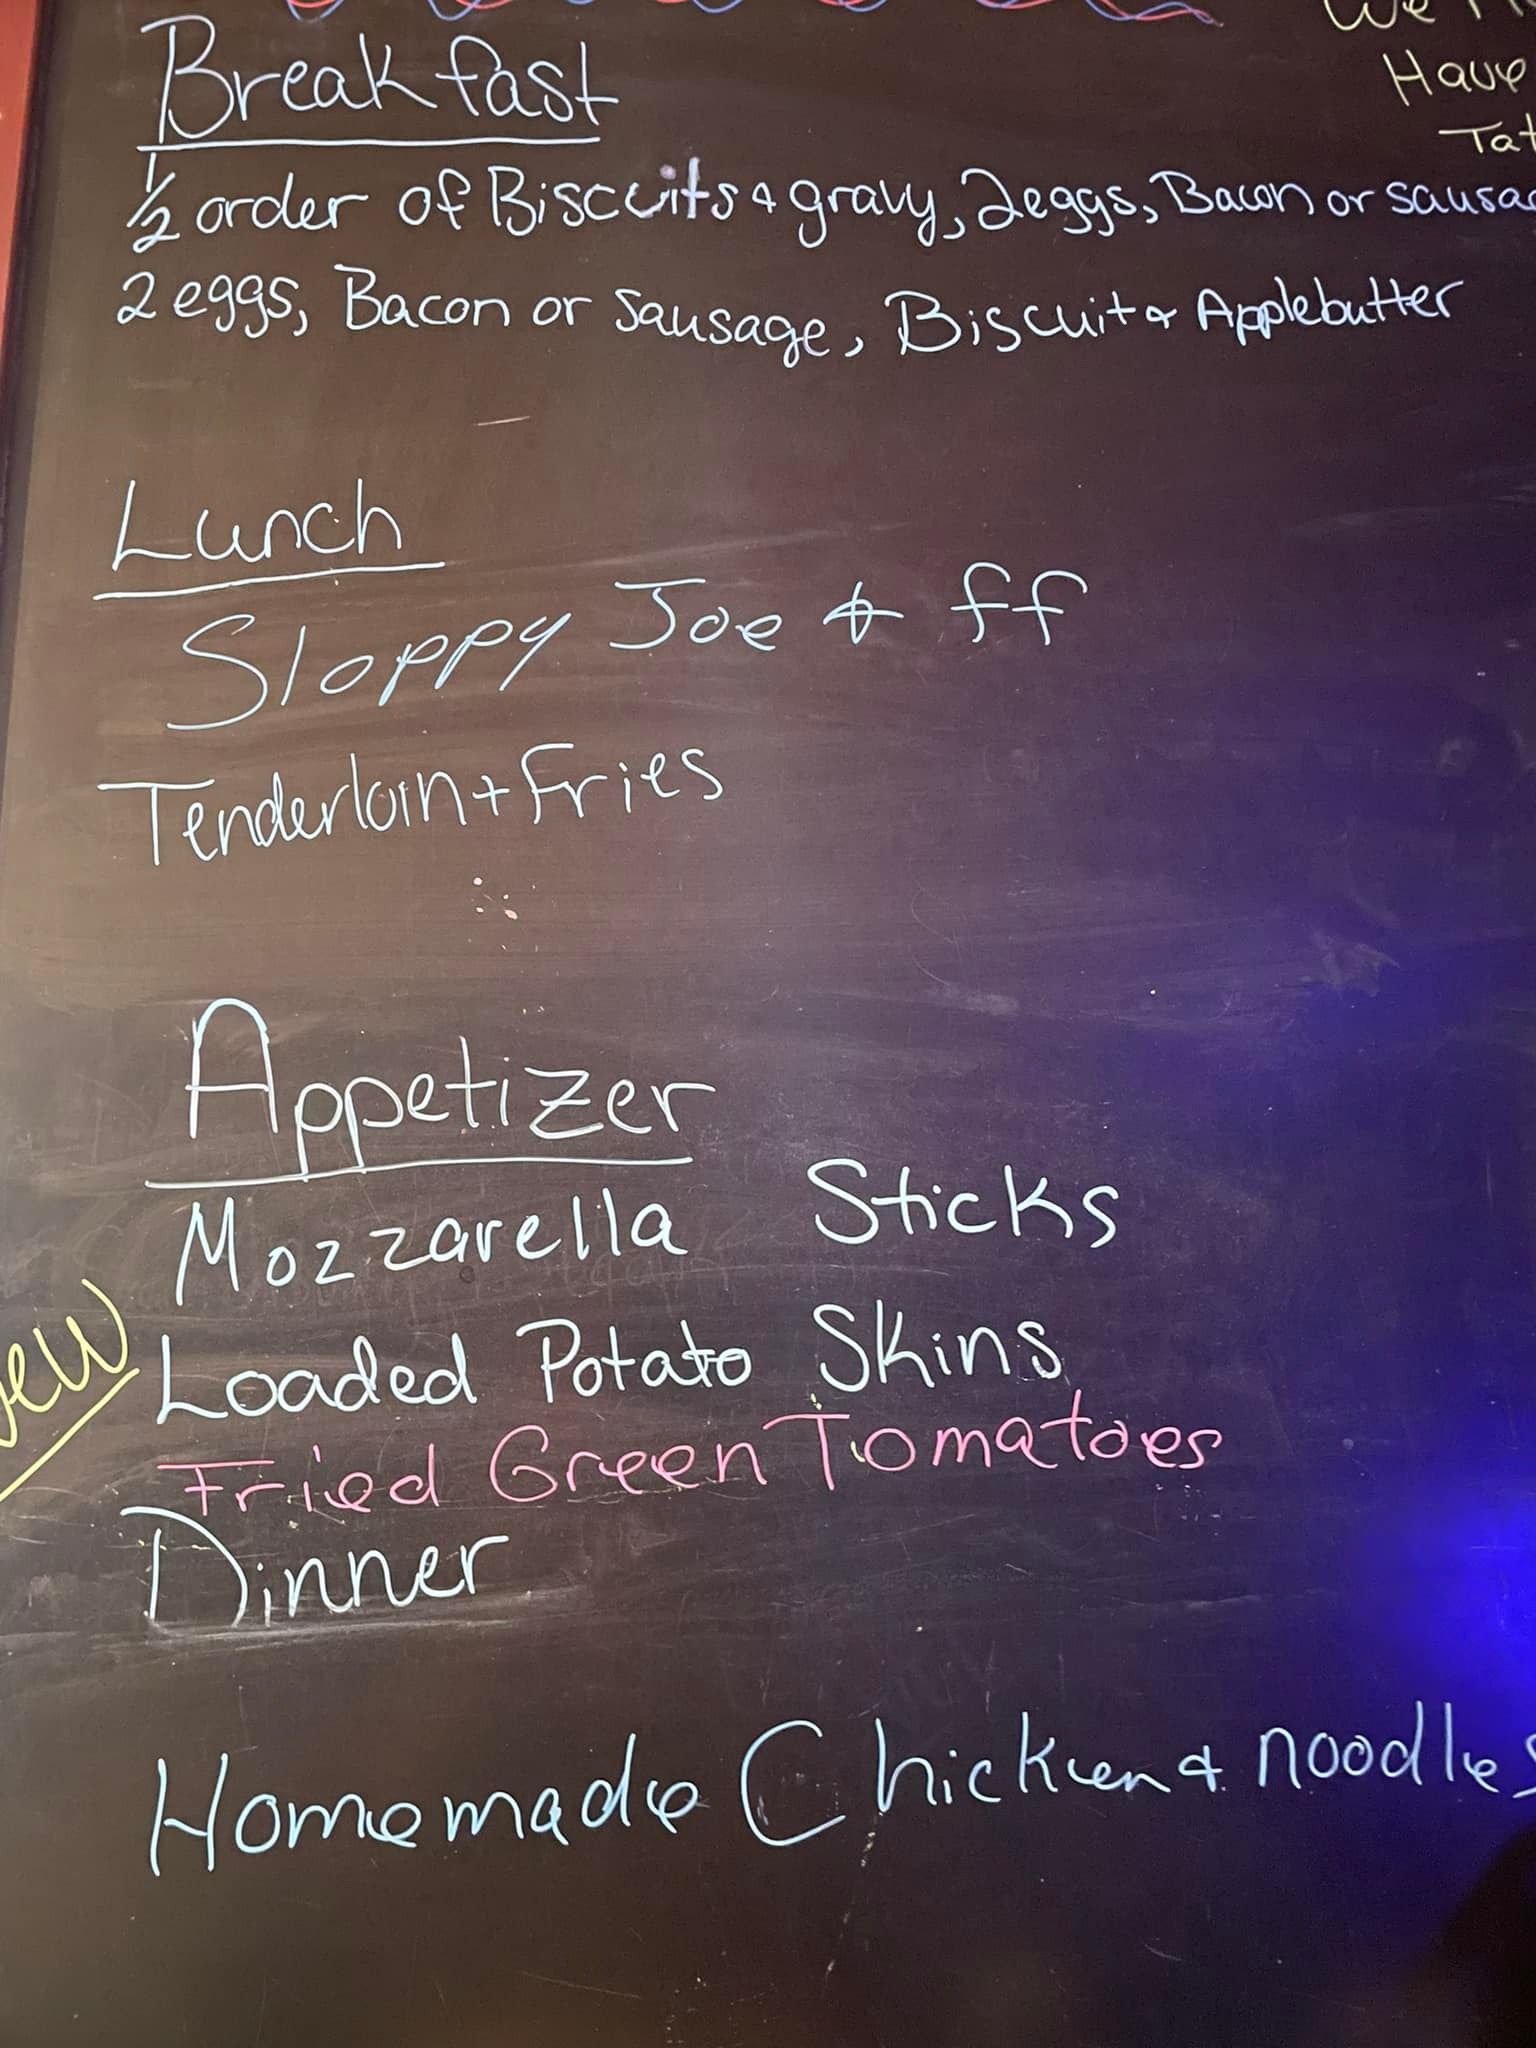 We
Have
Tat
Breakfast
1/2 order of Biscuits & gravy, 2eggs, Bacon or sausag
2 eggs, Bacon or sausage, Biscuit & Applebutter
Lunch
Sloppy Joe & ff
Tenderloin + Fries
Appetizer
Mozzarella Sticks
Loaded Potato Skins
New
Fried Green Tomatoes
Dinner
Homemade Chicken & noodles